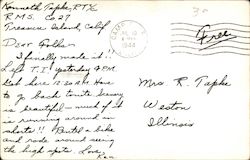 Kenneth Tapke, RT2/c
R.M.S. Co 29
Treasure Island, Calif
Dear Folks:
I finally made it!!
Left T.I. yesterday 4 P.M.
Got here 10:20 A.M. Have to
go back tonite. Scenery
is beautiful - much of it
is running around in
shorts!! Rented a bike
and rode around seeing
the high spots. Love,
Ken
1944
Free
Mrs R. Tapke
Weston
Illinois